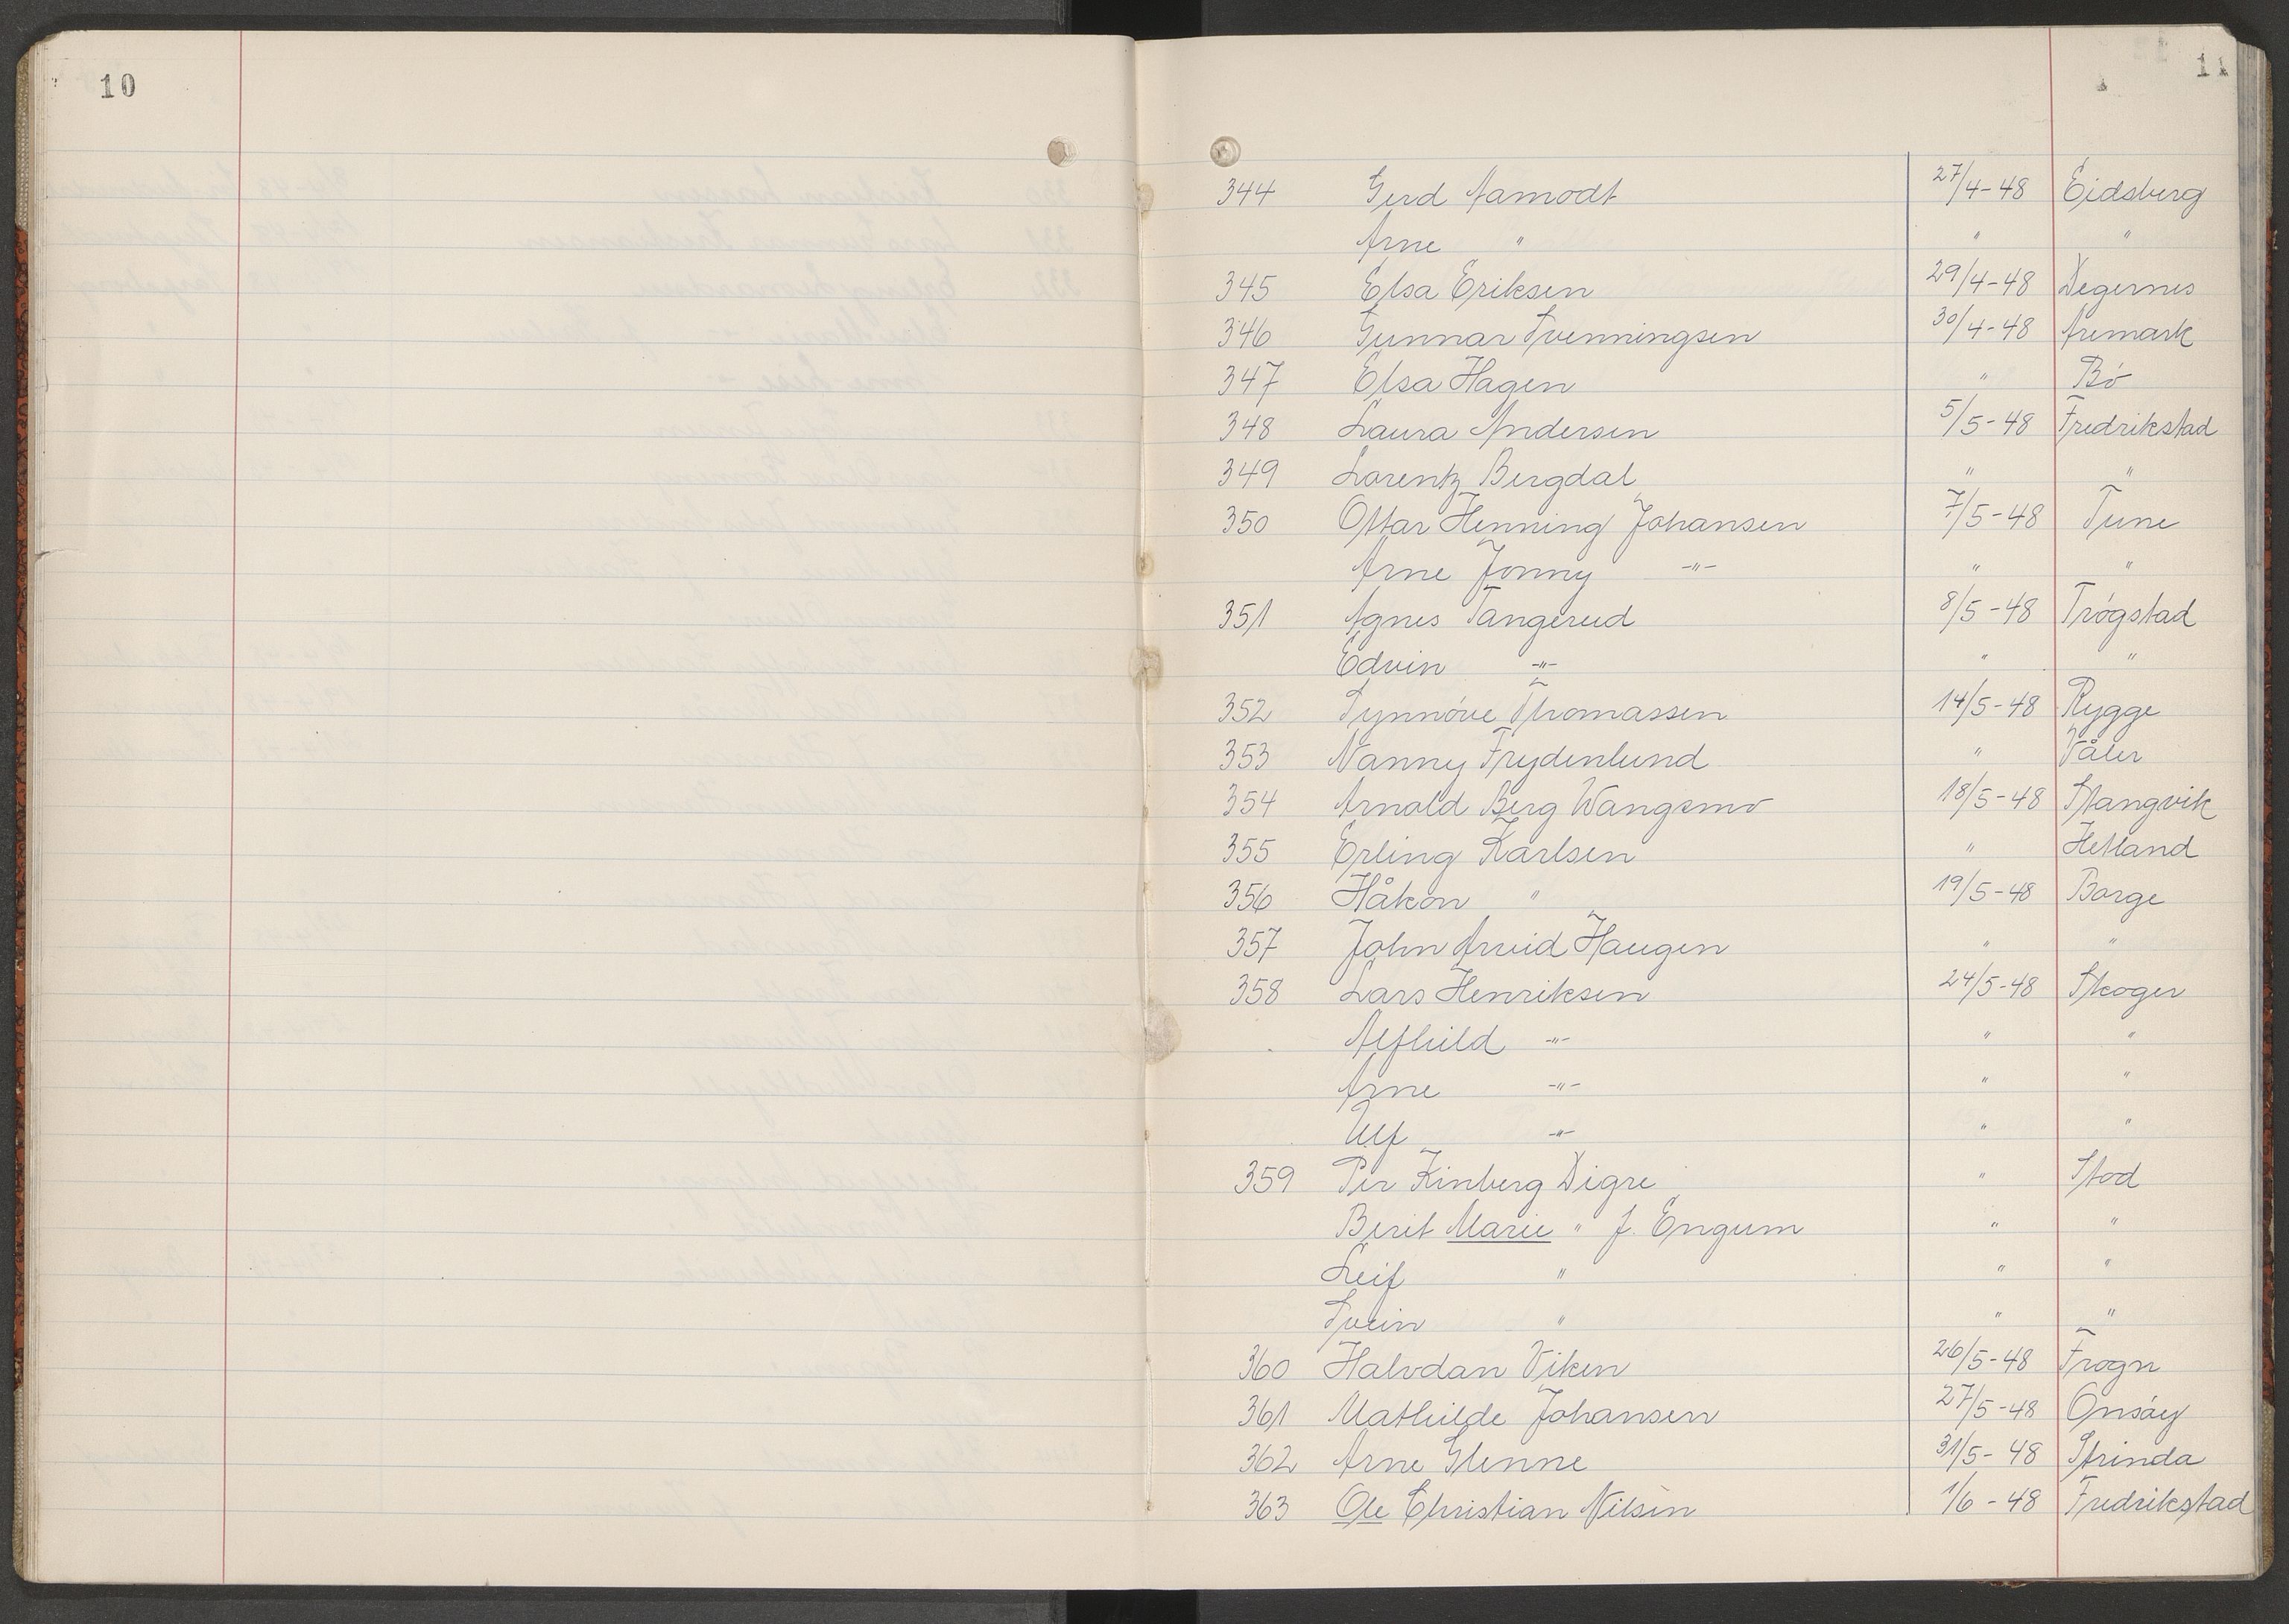 10
11
344 Gerd Aamodt 27/4-48 Eidsberg
Arne " " "
345 Elsa Eriksen 29/4-48 Degernes
346 Gunnar Svenningsen 30/4-48 Aremark
347 Elsa Hagen " Bö
348 Laura Andersen 5/5-48 Fredrikstad
349 Lorentz Bergdal " "
350 Ottar Henning Johansen 7/5-48 Tune
Arne Jonny -"- " "
351 Agnes Tangerud 8/5-48 Trógstad
Edvin -"- " "
352 Synnóve Thomassen 14/5-48 Rygge
353 Nanny Frydenlund " Våler
354 Arnold Berg Wangsmo 18/5-48 Stangvik
355 Erling Karlsen " Hetland
356 Håkon " 19/5-48 Borge
357 John Arvid Haugen " "
358 Lars Henriksen 24/5-48 Skoger
Alfhild -"- " "
Arne -"- " "
Ulf -"- " "
359 Per Kinberg Digre " Stod
Berit Marie " f. Engum " "
Leif " " "
Svein " " "
360 Halvdan Viken 26/5-48 Frogn
361 Mathilde Johansen 27/5-48 Onsóy
362 Arne Glenne 31/5-48 Strinda
363 Ole Christian Nilsen 1/6-48 Fredrikstad